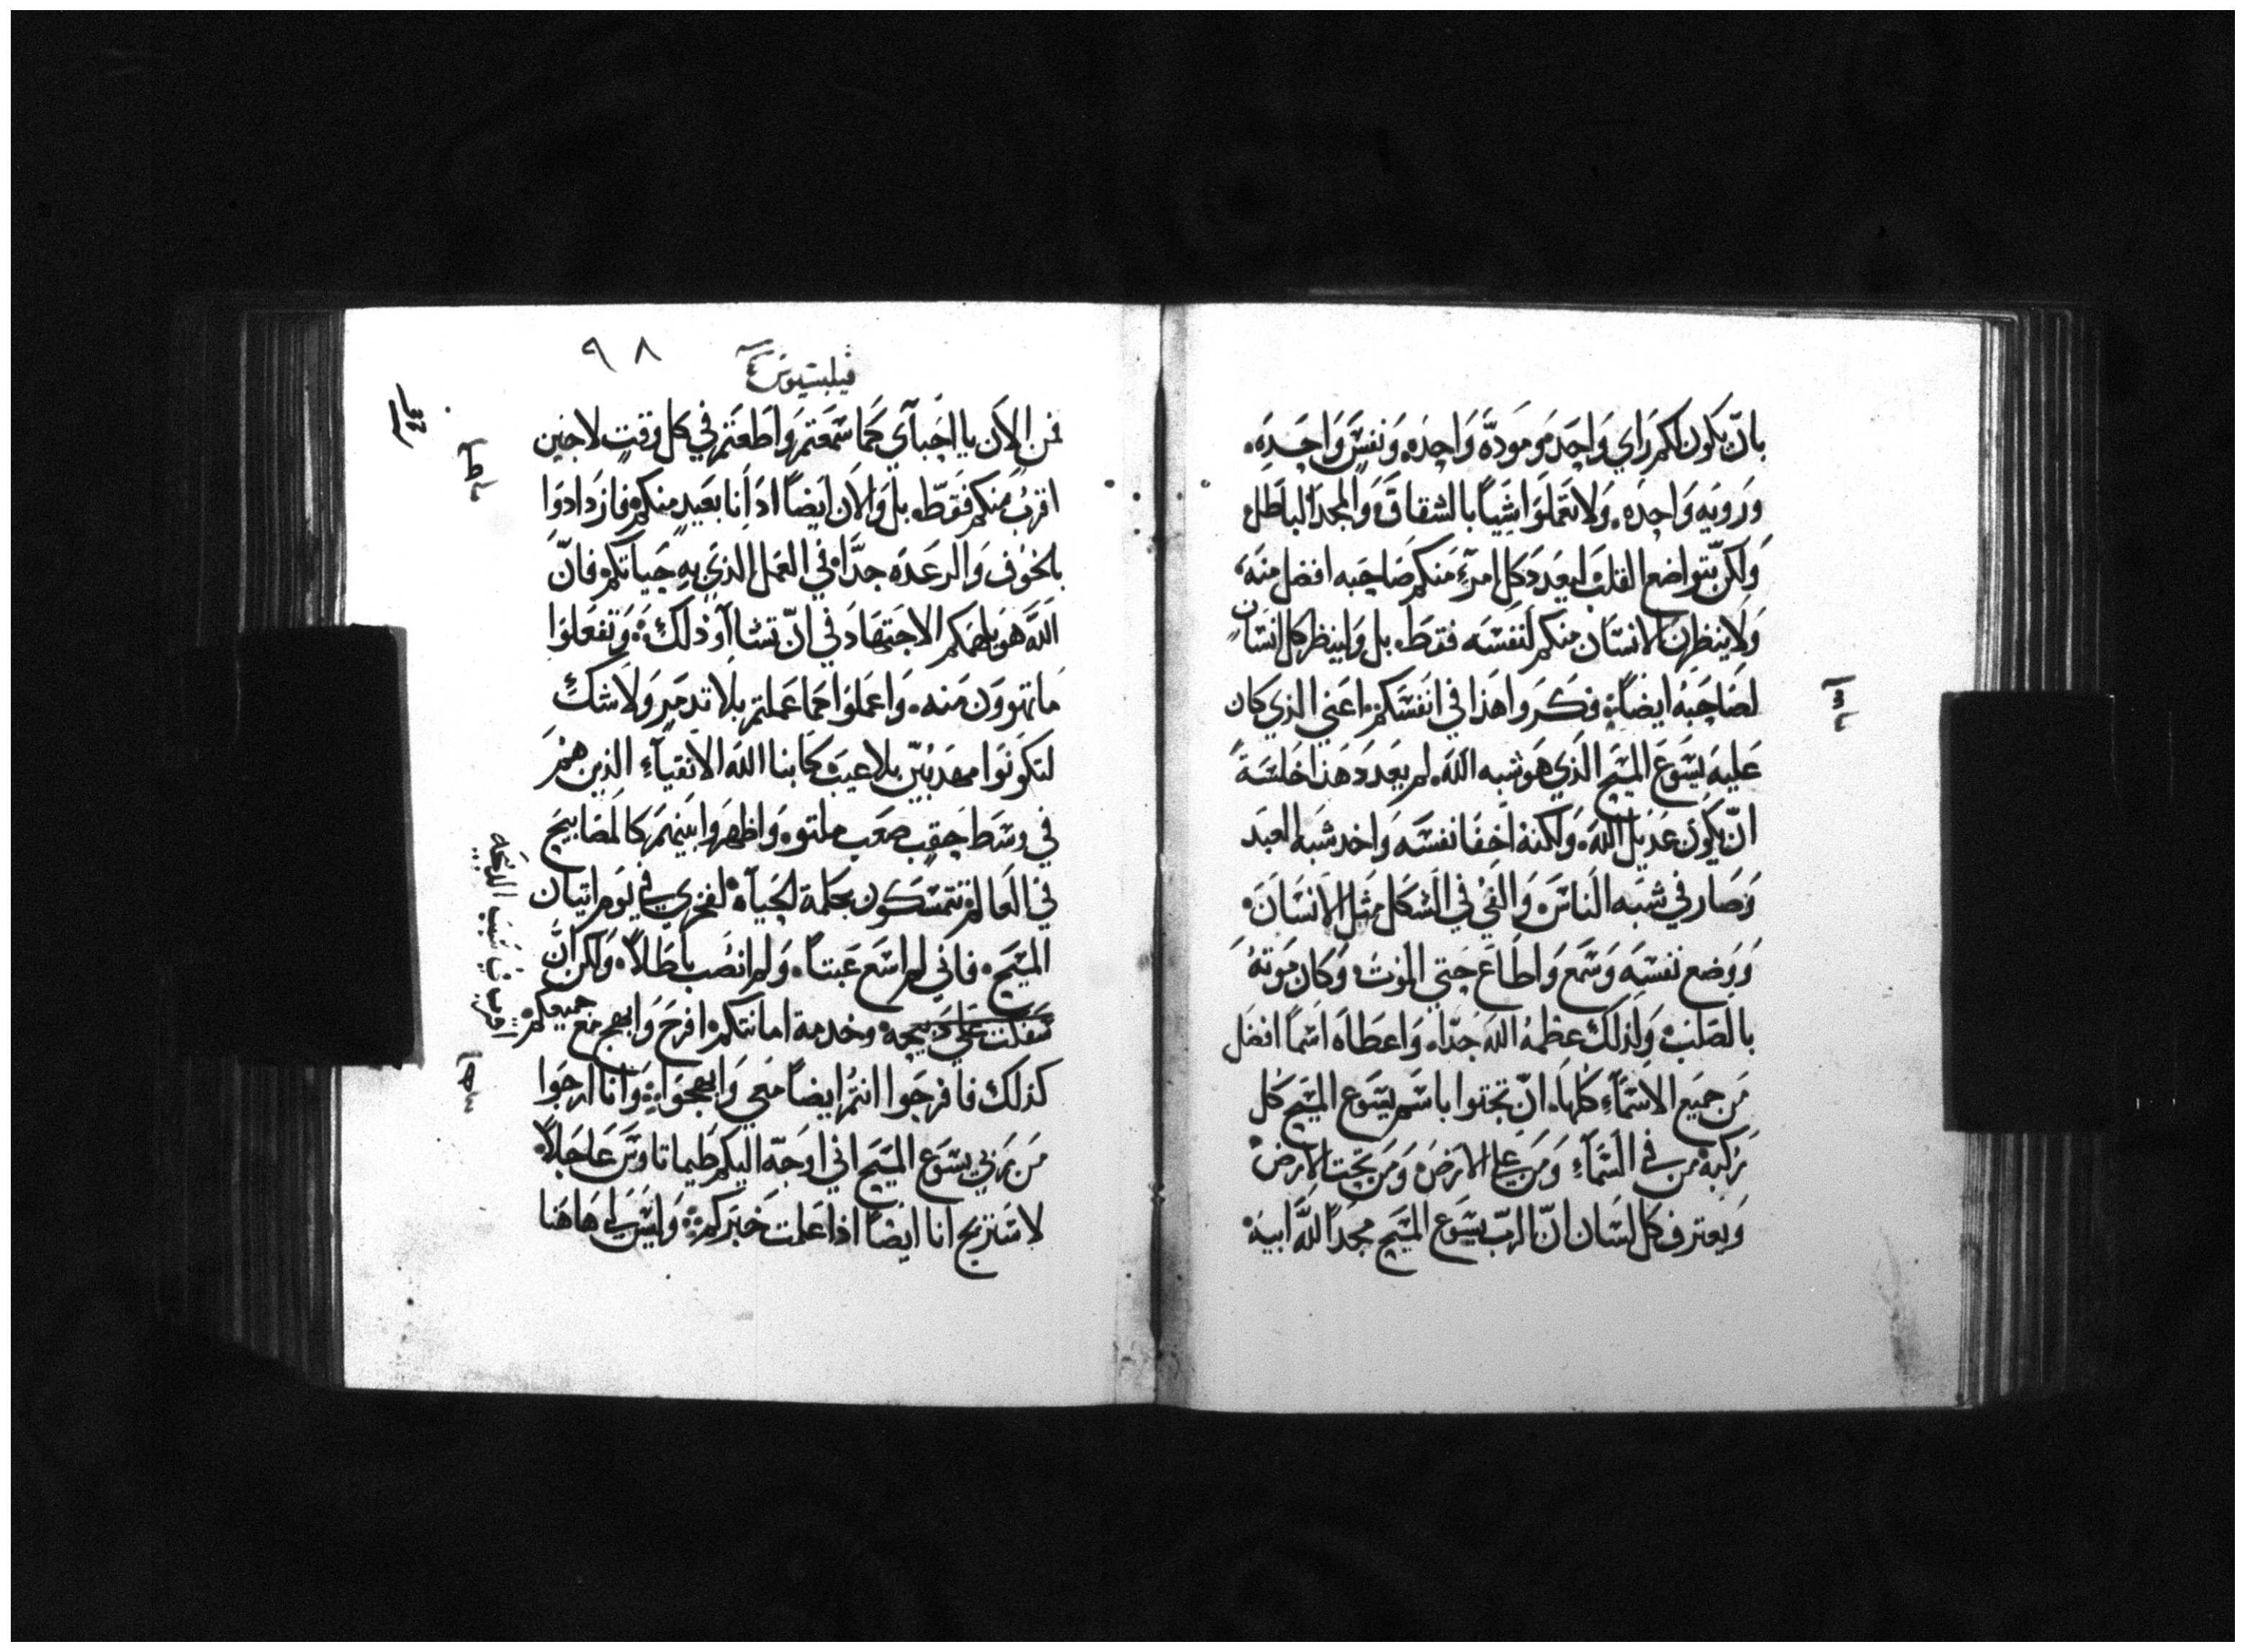 بانّ يكون لكم راي واحد ومودّة واحده ونفسٍ واحده.
ورويه واحده. ولا تعملوا شياً بالشقاق والمجد الباطل
ولكن بتواضع القلب ليعدد كل امرءٍ منكم صاحبه افضل منه
ولا ينظرن الانسان منكم لنفسه فقط. بل ولينظر كل انسانٍ
لصاحبه ايضاً فكروا هذا في انفسكم اعني الذي كان
عليه يسوع المسيح الذي هو شبه الله. لم يعدد هذا خلسةً
انّ يكون عديل الله. ولكنه اخفا نفسه واخد شبه العبد
وصار في شبه الناس والفي في الشكل مثل الانسان
ووضع نفسه وسمع واطاع حتي الموت وكان موته
بالصليب ولذلك عظمه الله جدّاً. واعطاه اسماً افضل
من جميع الاسمآءِ كلها. انّ تجتوا باسم يسوع المسيح كل
ركبه من في السمآءِ ومن علي الارض ومن تحت الارض
ويعترف كل لسان انّ الربّ يسوع المسيح مجداً لله ابيه
٩٨
فيلبسيوس
فمن الان يا احبآي كما سمعتم واطعتم في كل وقتٍ لا حين
اقربُ منكم فقط. بل والان ايضاً اد انا بعيدٍ منكم فازدادوا
بالخوف والرعده جدّاً في العمل الذي به حياتكم فانّ
الله هو يلهمكم الاجتهاد في انّ تشاآو ذلك وتفعلوا
ما تهوون منه. واعملوا كما عملتم بلا تدمرٍ ولا شكٍ
لتكونوا مهدبيّن بلا عيب كابنا الله الانقيآءِ الذين هم
في وسط حقبٍ صعب ملتوٍ. واظهروا بينهم كالمصابيح
في العالم تتمسكون بكلمة الحياة لفخري في يوم اتيان
المسيح. فاني لم اسع عبتاً. ولم انصب باطلاً ولكن انّ
سفكت علي دبيحه وخدمة امانتكم افرح وابهج مع جميعكم
اقرب في سبب الدبيحه
كذلك فافرحوا انتم ايضاً معي وابهجوا وانا ارجوا
من ربي يسوع المسيح اني اوجه اليكم طيماتاوس عاجلاً
لاستنزيح انا ايضاً اذا علمت خبركم وليس لي هاهنا